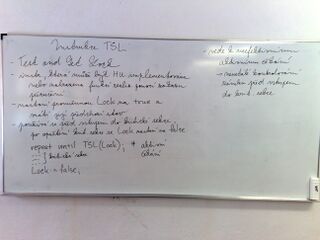 Instrukce TSL
- Test and Set Lock
- instr., která musí být HW implementována
nebo nahrazena funkcí
- nastaví proměnnou Lock na true a
vrátí její předchozí stav
- používá se před vstupem do kritické sekce,
po opuštění krit. sekce se Lock nastaví na false
repeat until TSL(Lock); * aktivní
čekání
kritická sekce
Lock = false;
- vede k neefektivnímu
aktivnímu čekání
vstupem
do krit. sekce